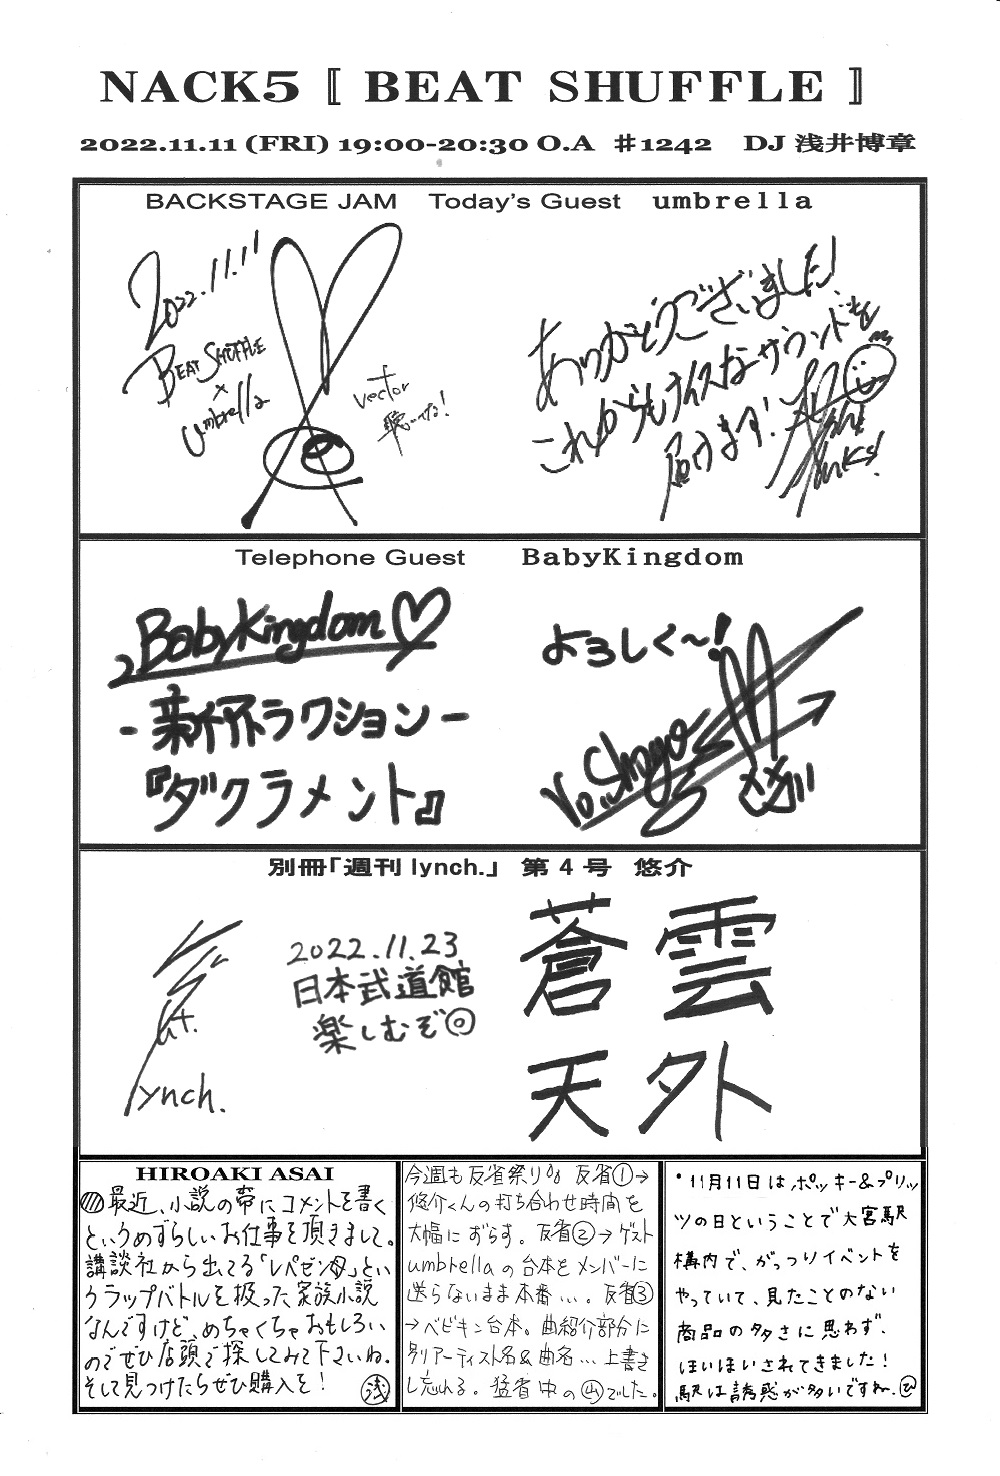 NACK5〚 BEAT SHUFFLE 〛
2022.11.11 (FRI) 19:00-20:30 O.A ♯1242 DJ 浅井博章
BACKSTAGE JAM Today's Guest umbrella
2022.11.11
BEAT SHUFFLE
×
umbrella
vector
聴いてな!
ありがとうございました!
これからもナイスなサウンドを
届けます!
Telephone Guest BabyKingdom
BabyKingdom♡
-新アトラクション-
『ダクラメント』
よろしく〜!
Vo.Shogo
別冊「週刊 lynch.」 第 4 号 悠介
lynch.
2022.11.23
日本武道館
楽しむぞ
蒼雲
天外
HIROAKI ASAI
最近、小説の帯にコメントを書く
というめずらしいお仕事を頂きまして。
講談社から出てる「レペゼン母」とい
うラップバトルを扱った家族小説
なんですけど、めちゃくちゃおもしろい
のでぜひ店頭で探してみて下さいね。
そして見つけたらぜひ購入を! 浅
今週も反省祭り 反省①→
悠介くんの打ち合わせ時間を
大幅にずらす。反省②→ゲスト
umbrellaの台本をメンバーに
送らないまま本番…。反省③
→ベビキン台本。曲紹介部分に
別アーティスト名&曲名…上書き
し忘れる。猛省中の山でした。
・11月11日はポッキー&プリッ
ツの日ということで大宮駅
構内で、がっつりイベントを
やっていて、見たことのない
商品の多さに思わず、
ほいほいされてきました!
駅は誘惑が多いですね。ひ